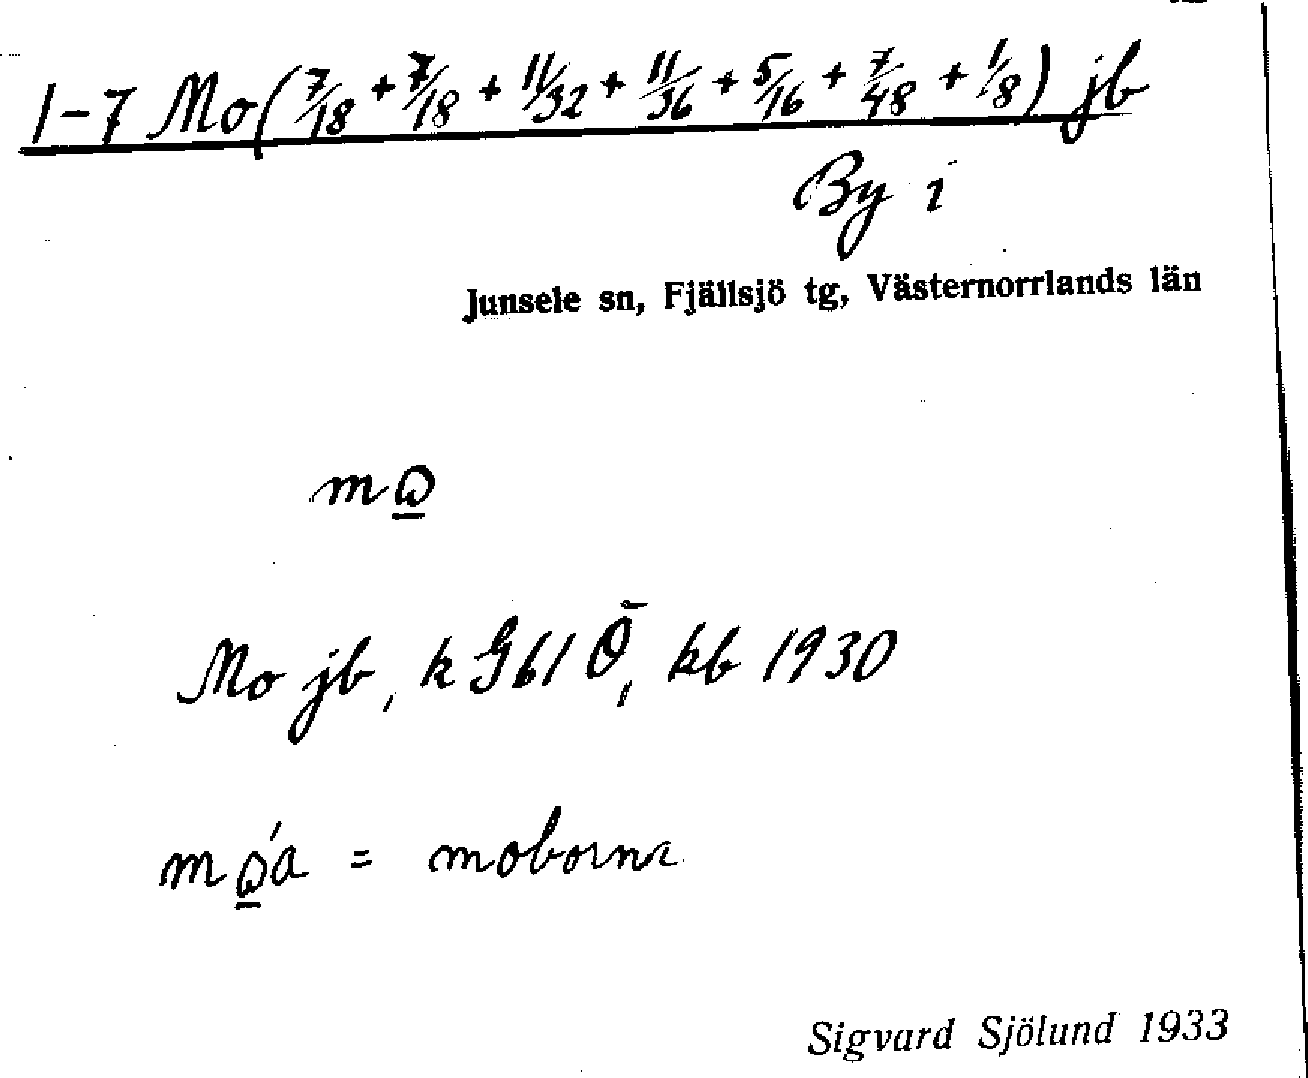 1-7 Mo (7/18 + 7/18 + 11/32 + 11/36 + 5/16 + 7/48 + 1/8) jb
By i
Junsele sn, Fjällsjö tg, Västernorrlands län
Mo jb, k G61 Ö, kb 1930
= moborna
Sigvard Sjölund 1933